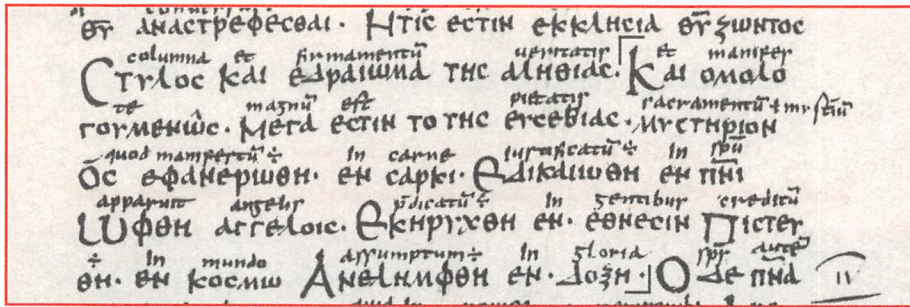 θ̅υ̅ αναστρεφεσθαι · Ητις εστιν εκκλησια θ̅υ̅ ζωντος
columna et firmamentū ueritatis et manifes
Στυλος και εδραιωμα της αληθιας. ⌈Και ομολο
te magnū est pietatis sacramentū ł mysstiū
γουμενως · Μεγα εστιν το της ευσεβιας · μυστηριον
quod manifestū ÷ In carne Iustificatū ÷ In spū
Ο̅ς εφανερωθη · εν σαρκι · Εδικαιωθη εν π̅ν̅ι̅
apparuit angelis p̄dicatū ÷ In gentibus creditū
Ωφθη αγγελοις · Εκηρυχθη εν · εθνεσιν Πιστευ
÷ In mundo assumptum ÷ In gloria sp̄s autē
θη · εν κοσμω Ανελημφθη εν · Δοξη ·⌋ Ο δε π̅ν̅α̅